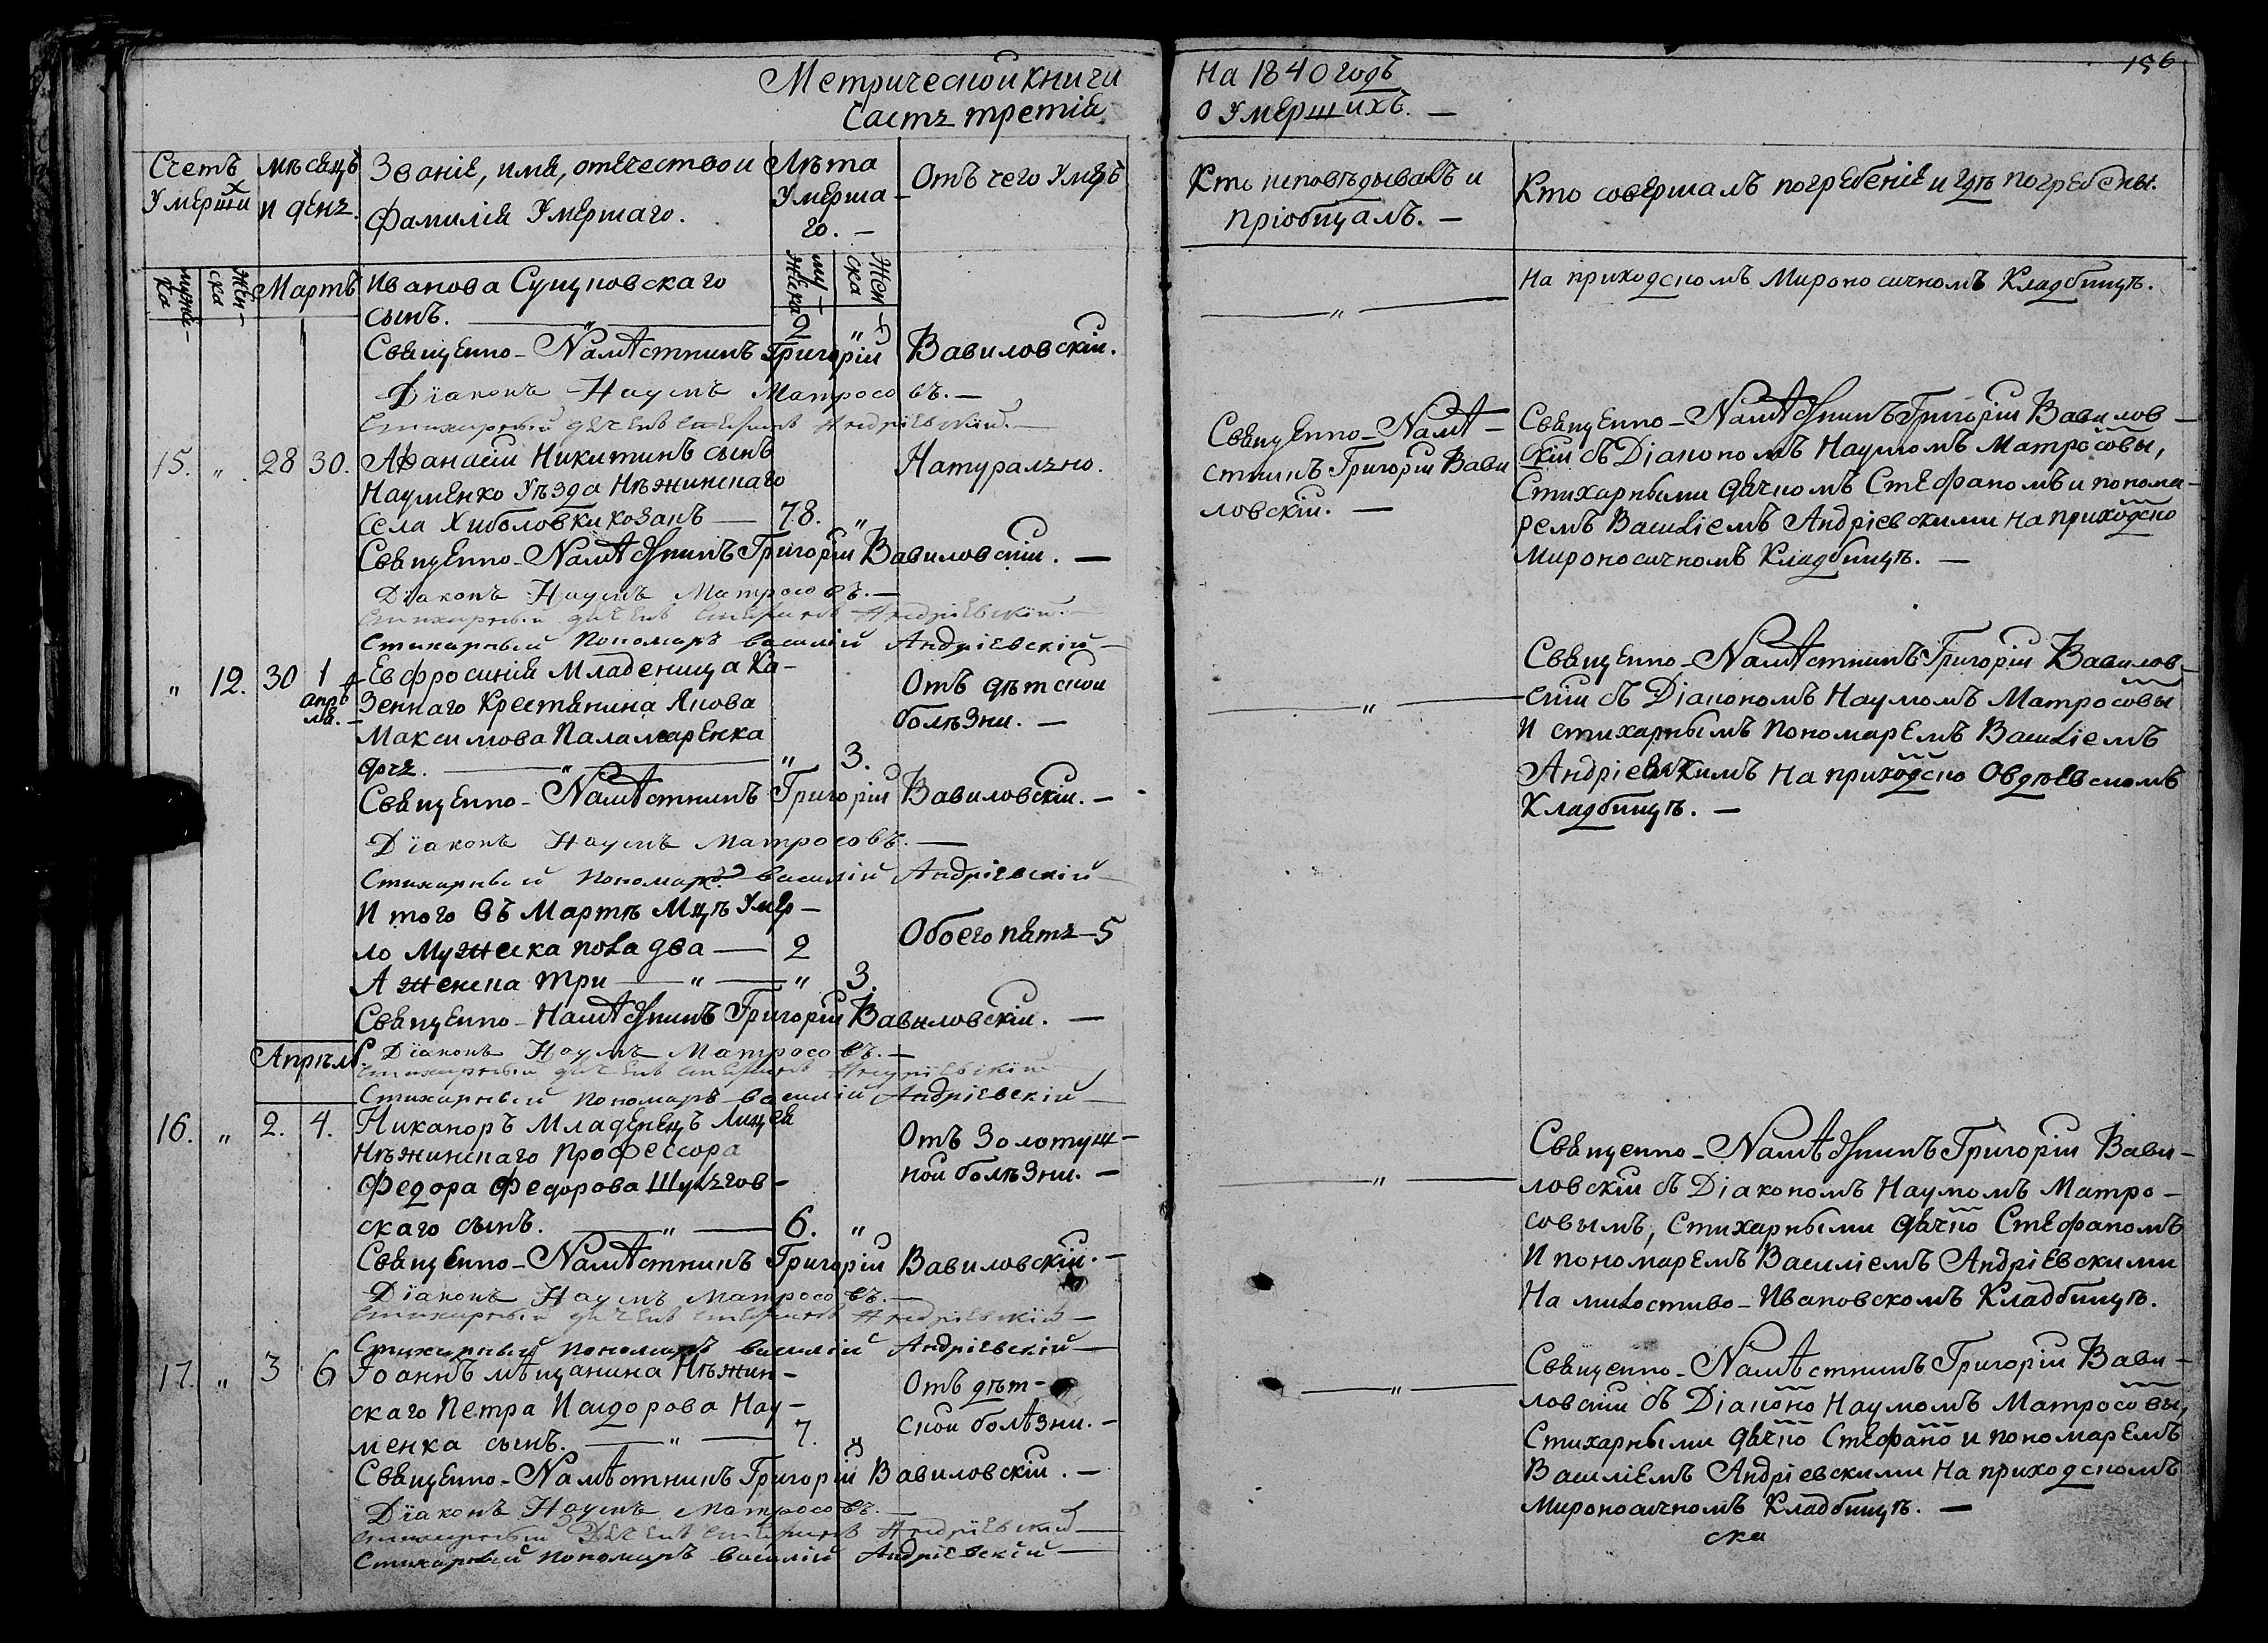 Метрической книги
Часть третія
На 1840 годъ
о умершихъ. —
156
Счетъ умерших
мѣсяцъ и день.
Званіе, имя, отечество и фамилія умершаго.
Лѣта умерша-
го. —
Отъ чего умеръ
Кто исповѣдывалъ и
пріобщалъ. —
Кто совершалъ погребеніе и гдѣ погребены.
мужес-
ка
жен-
ска
Мартъ
му-
жеска
жен-
ска
Иванова Сущновскаго
сынъ. — „ — 2 „
— „ —
на приходскомъ Мироносичномъ Кладбищѣ.
Священно-Намѣстникъ Григорій Вавиловскій.
Діаконъ Наумъ Матросовъ. —
Стихарный дячекъ Стефанъ Андріевскій. —
15. „ 28 30. Афанасій Никитинъ сынъ
Науменко уѣзда Нѣжинскаго
села Хиболовки козакъ — 78. „
Натурально.
Священно-Намѣ-
стникъ Григорій Вави
ловскій. —
Священно-Намѣстникъ Григорій Вавилов-
скій съ Діакономъ Наумомъ Матросовы,
Стихарными дячкомъ Стефаномъ и понома-
ремъ Василіемъ Андріевскими на приходско
Мироносичномъ Кладбищѣ. —
Священно-Намѣстникъ Григорій Вавиловскій. —
Діаконъ Наумъ Матросовъ. —
Стихарный дячекъ Стефанъ Андріевскій. —
Стихарный пономарь Василій Андріевскій —
„ 12. 30 1
апрѣ
ля. —
Евфросинія младеница Ка-
зеннаго крестянина Якова
Максимова Паламаренка
дочь. — „ — „ 3.
Отъ дѣтской
болѣзни. —
— „ —
Священно-Намѣстникъ Григорій Вавилов-
скій съ Діакономъ Наумомъ Матросовы
и стихарнымъ пономаремъ Василіемъ
Андріевскимъ на приходско Овдѣевскомъ
Кладбищѣ. —
Священно-Намѣстникъ Григорій Вавиловскій. —
Діаконъ Наумъ Матросовъ. —
Стихарный пономарь Василій Андріевскій —
И того въ Мартѣ мцѣ умер-
ло мужеска пола два — 2
А женска три — „ — „ 3.
Обоего пять — 5
Священно-Намѣстникъ Григорій Вавиловскій. —
Діаконъ Наумъ Матросовъ. —
Стихарный дячекъ Стефанъ Андріевскій
Стихарный пономарь Василій Андріевскій —
Апрѣль.
16. „ 2. 4. Никаноръ младенецъ Лицея
Нѣжинскаго Профессора
Федора Федорова Шульгов-
скаго сынъ. — „ — 6. „
Отъ золотуш-
ной болѣзни. —
— „ —
Священно-Намѣстникъ Григорій Вави-
ловскій съ Діакономъ Наумомъ Матро-
совымъ, стихарными дячко Стефаномъ
и пономаремъ Василіемъ Андріевскими
на милостиво-Ивановскомъ Кладбищѣ.
Священно-Намѣстникъ Григорій Вавиловскій. —
Діаконъ Наумъ Матросовъ. —
Стихарный дячекъ Стефанъ Андріевскій —
Стихарный пономарь Василій Андріевскій —
17. „ 3 6 Іоаннъ мѣщанина Нѣжин-
скаго Петра Исидорова Нау-
менка сынъ. — „ — 7. „
Отъ дѣт-
ской болѣзни. —
— „ —
Священно-Намѣстникъ Григорій Вави-
ловскій съ Діаконо Наумомъ Матросовы,
Стихарными дячко Стефано и пономаремъ
Василіемъ Андріевскими на приходскомъ
Мироносичномъ Кладбищѣ. —
ска
Священно-Намѣстникъ Григорій Вавиловскій. —
Діаконъ Наумъ Матросовъ. —
Стихарный Дячекъ Стефанъ Андріевскій —
Стихарный пономарь Василій Андріевскій —